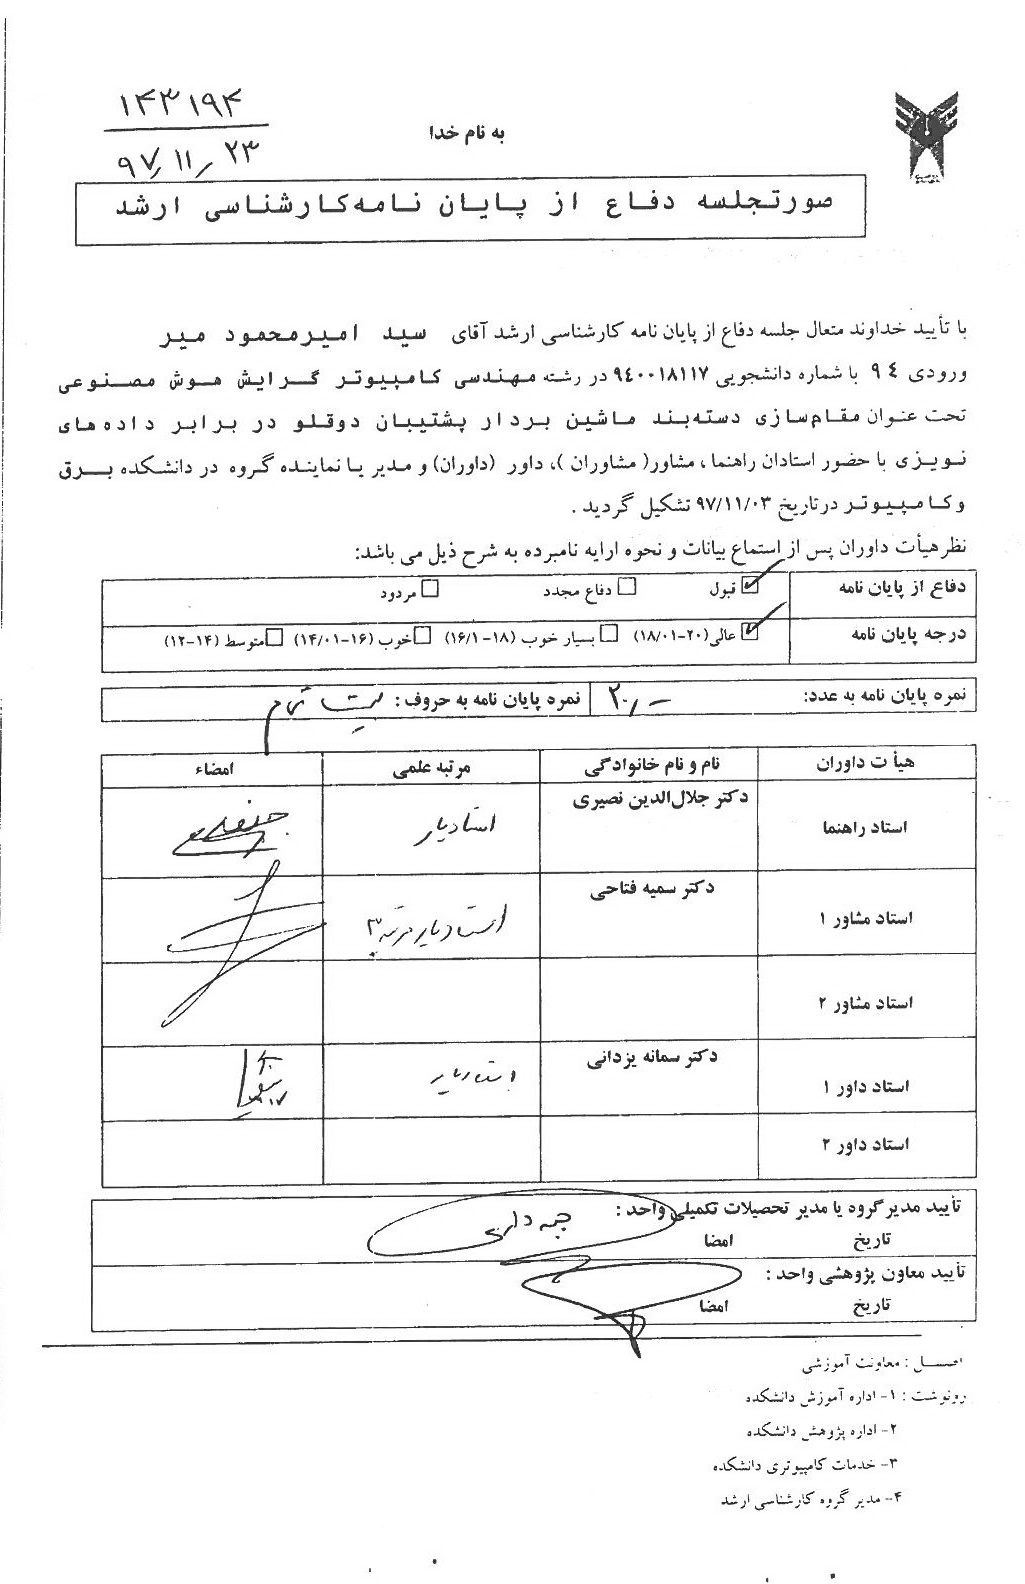 ۱۴۳۱۹۴
۹۷/۱۱/۲۳
به نام خدا
صورتجلسه دفاع از پایان نامه کارشناسی ارشد
با تأیید خداوند متعال جلسه دفاع از پایان نامه کارشناسی ارشد آقای سید امیرمحمود میر
ورودی ۹۴ با شماره دانشجویی ۹۴۰۰۱۸۱۱۷ در رشته مهندسی کامپیوتر گرایش هوش مصنوعی
تحت عنوان مقام‌سازی دسته‌بند ماشین بردار پشتیبان دوقلو در برابر داده‌های
نویزی با حضور استادان راهنما ، مشاور( مشاوران )، داور (داوران) و مدیر یا نماینده گروه در دانشکده برق
و کامپیوتر در تاریخ ۹۷/۱۱/۰۳ تشکیل گردید .
نظر هیأت داوران پس از استماع بیانات و نحوه ارایه نامبرده به شرح ذیل می باشد:
دفاع از پایان نامه قبول دفاع مجدد مردود
درجه پایان نامه عالی(۲۰-۱۸/۰۱) بسیار خوب (۱۸-۱۶/۱) خوب (۱۶-۱۴/۰۱) متوسط (۱۴-۱۲)
نمره پایان نامه به عدد: ۲۰/- نمره پایان نامه به حروف : بیست تمام
هیأت داوران نام و نام خانوادگی مرتبه علمی امضاء
استاد راهنما دکتر جلال‌الدین نصیری استادیار
استاد مشاور ۱ دکتر سمیه فتاحی استادیار مرتبه ۳
استاد مشاور ۲
استاد داور ۱ دکتر سمانه یزدانی استادیار
استاد داور ۲
تأیید مدیر گروه یا مدیر تحصیلات تکمیلی واحد :
تاریخ امضا
تأیید معاون پژوهشی واحد :
تاریخ امضا
اصل : معاونت آموزشی
رونوشت : ۱- اداره آموزش دانشکده
۲- اداره پژوهش دانشکده
۳- خدمات کامپیوتری دانشکده
۴- مدیر گروه کارشناسی ارشد